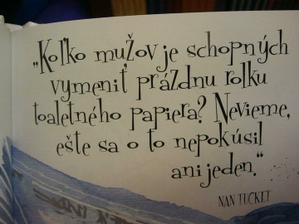 „Koľko mužov je schopných
vymeniť prázdnu rolku
toaletného papiera? Nevieme,
ešte sa o to nepokúsil
ani jeden.“
NAN TUCKET